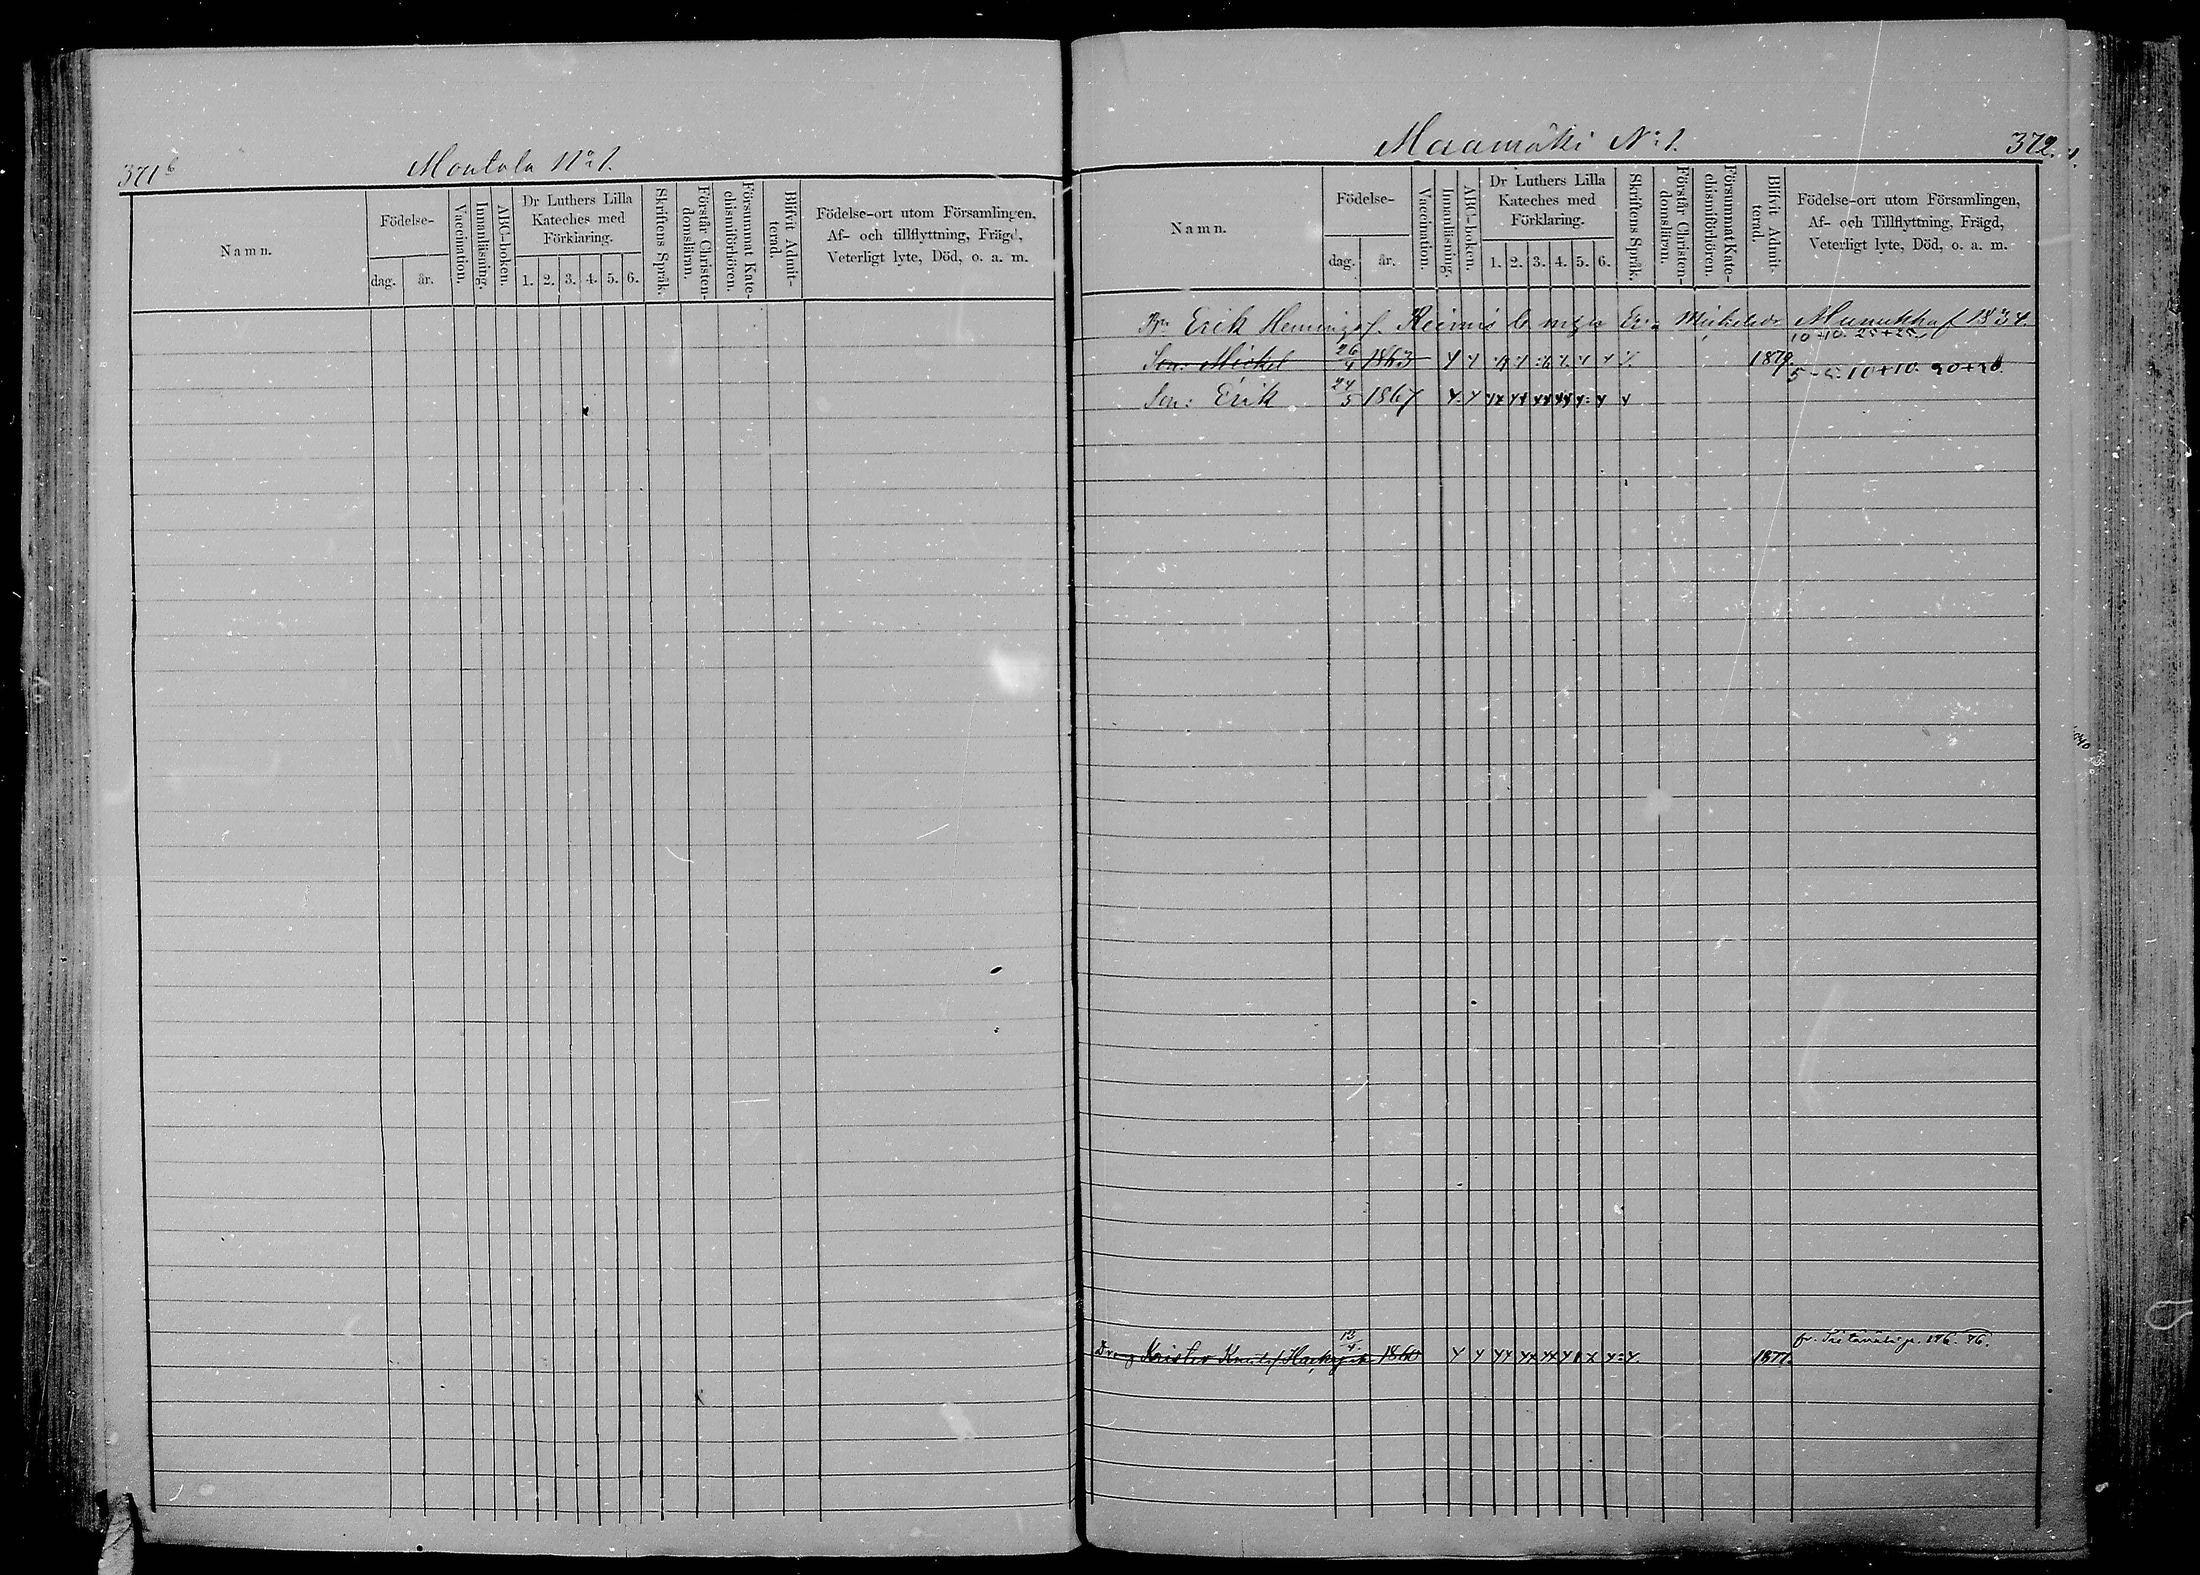 371 b
Montola N:o 1.
Namn.
Födelse-
dag.
år.
Vaccination.
Innanläsning.
ABC-boken.
Dr Luthers Lilla
Kateches med
Förklaring.
1. 2. 3. 4. 5. 6.
Skriftens Språk.
Förstår Christen-
domsläran.
Försummat Kate-
chismiförhören.
Blifvit Admit-
terad.
Födelse-ort utom Församlingen,
Af- och tillflyttning, Frägd,
Veterligt lyte, Död, o. a. m.
Maamäki N:o 1.
372.
Namn.
Födelse-
dag.
år.
Vaccination.
Innanläsning.
ABC-boken.
Dr Luthers Lilla
Kateches med
Förklaring.
1. 2. 3. 4. 5. 6.
Skriftens Språk.
Förstår Christen-
domsläran.
Försummat Kate-
chismiförhören.
Blifvit Admit-
terad.
Födelse-ort utom Församlingen,
Af- och Tillflyttning, Frägd,
Veterligt lyte, Död, o. a. m.
Erik Henningsf. 1834.
10+10. 25+25.
Son: Mickel 26/4 1863 1879
10+10. 20+20.
Son: Erik 24/5 1867
Dreng Krister Knutsf 13/4 1860 1877.
fr. p. 196. 76.